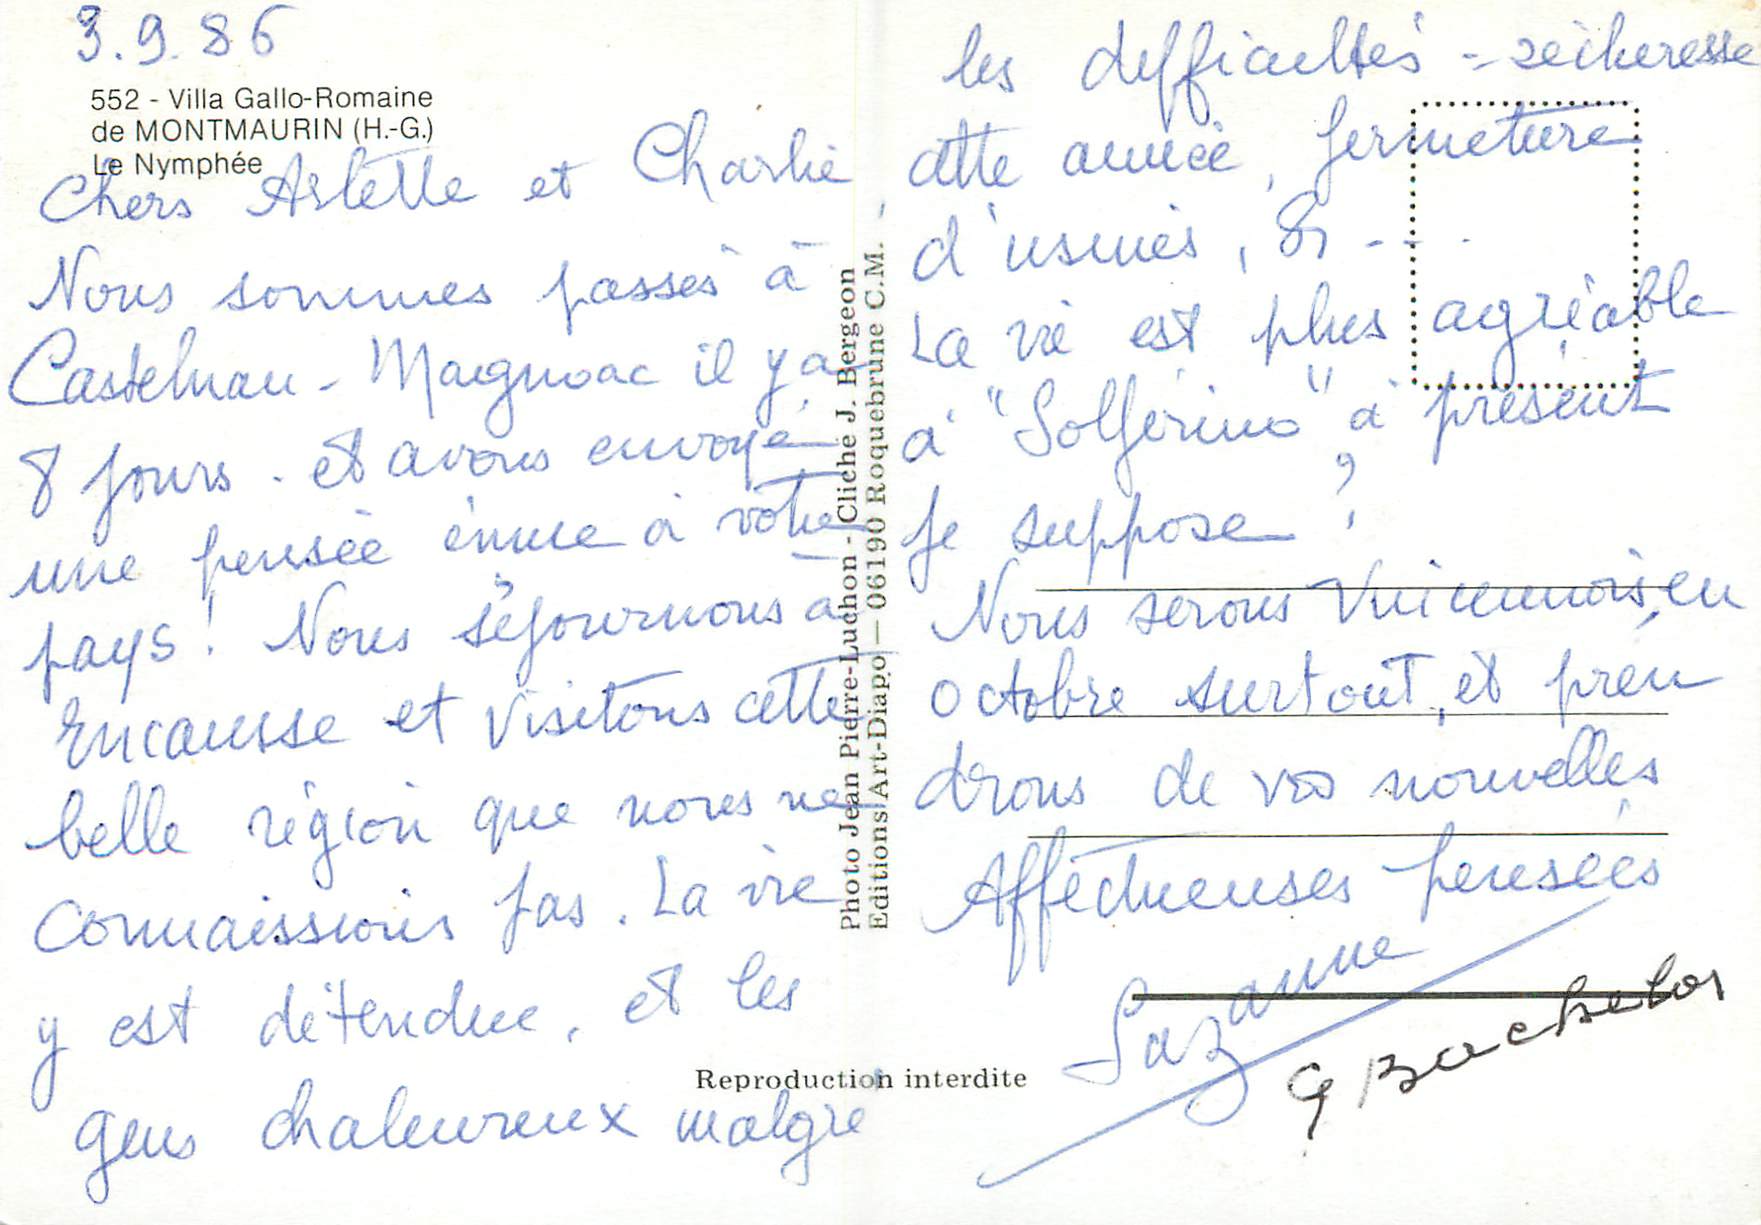 3.9.86
552 - Villa Gallo-Romaine
de MONTMAURIN (H.-G.)
Le Nymphée
Chers Arlette et Charlie,
Nous sommes passés à
Castelnau-Magnoac il y a
8 jours. et avons envoyé
une pensée émue à votre
pays! Nous séjournons à
Encausse et visitons cette
belle région que nous ne
connaissions pas. La vie
y est détendue, et les
gens chaleureux malgré
les difficultés - sécheresse
cette année, fermeture
d'usines, &....
La vie est plus agréable
à "Solférino" à présent
je suppose?
Nous serons Vincennois, en
octobre surtout, et pren
drons de vos nouvelles
Affectueuses pensées
Suzanne
G Bachelot
Photo Jean Pierre-Luchon - Cliché J. Bergeon
Editions Art-Diapo — 06190 Roquebrune C.M.
Reproduction interdite